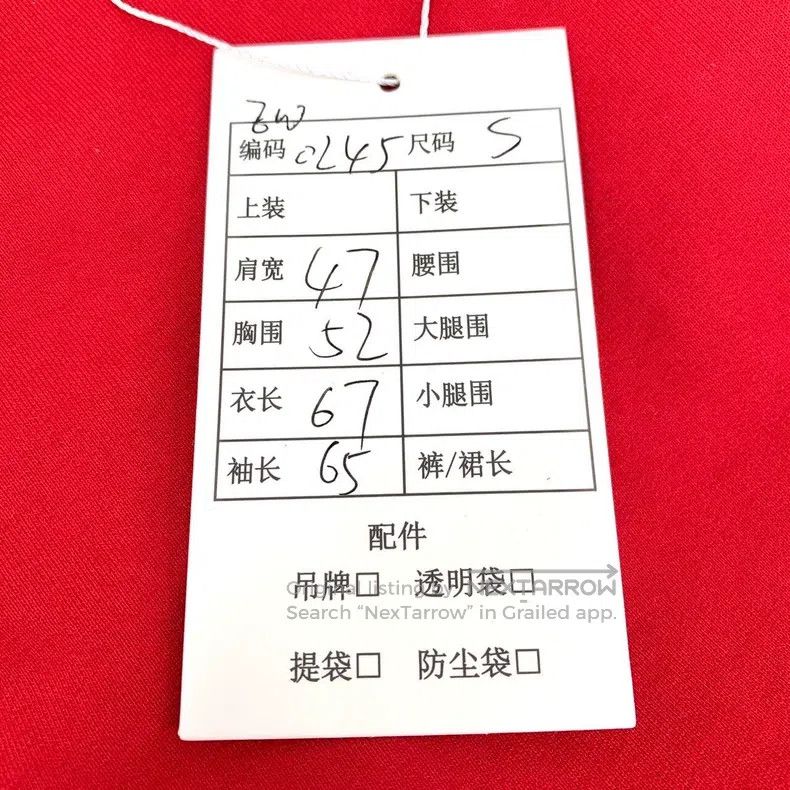 ZW
编码 0245 尺码 S
上装 下装
肩宽 47 腰围
胸围 52 大腿围
衣长 67 小腿围
袖长 65 裤/裙长
配件
吊牌□ 透明袋□
Original listing by NEXTARROW
Search “NexTarrow” in Grailed app.
提袋□ 防尘袋□